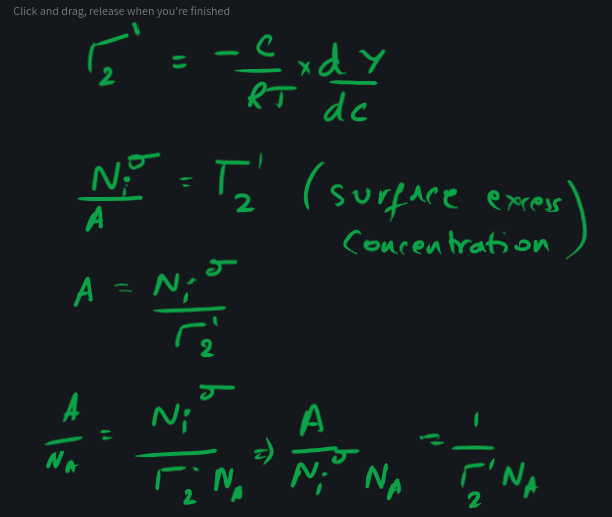 Click and drag, release when you're finished
Γ₂¹ = -C/RT × dγ/dc
Nᵢ^σ/A = Γ₂¹ (surface exess
concentration)
A = Nᵢ^σ/Γ₂¹
A/N_A = Nᵢ^σ/Γ₂¹ N_A ⇒ A/Nᵢ^σ N_A = 1/Γ₂¹ N_A